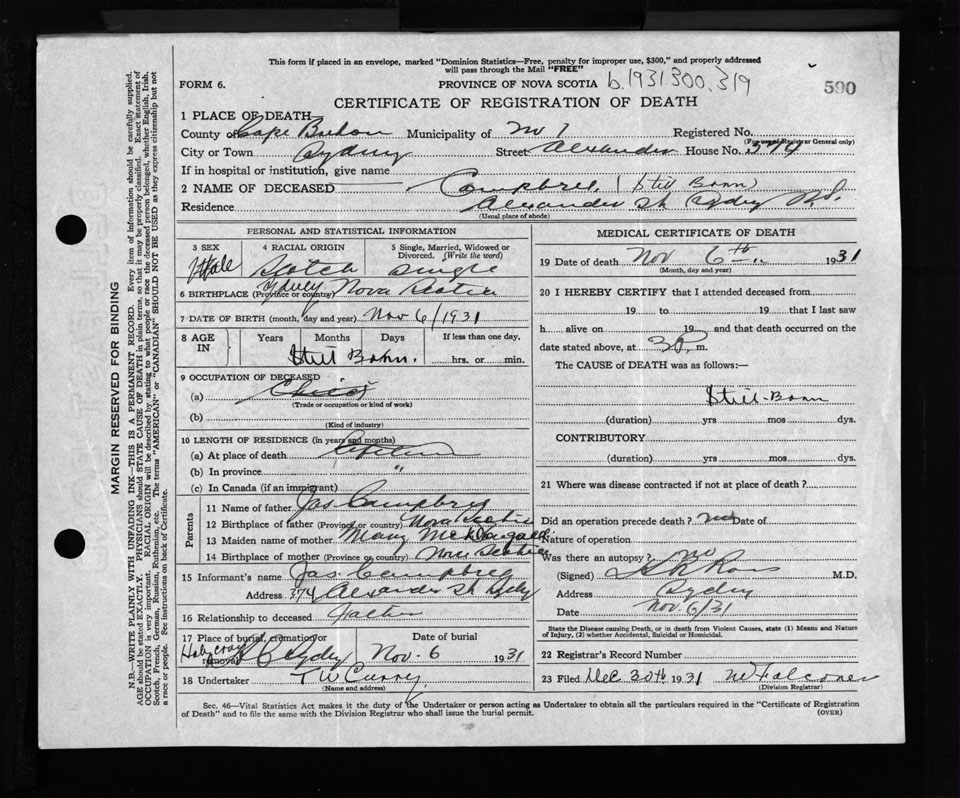 This form if placed in an envelope, marked "Dominion Statistics—Free, penalty for improper use, $300," and properly addressed
will pass through the Mail "FREE"
FORM 6. PROVINCE OF NOVA SCOTIA b.1931.300.319 590
CERTIFICATE OF REGISTRATION OF DEATH
1 PLACE OF DEATH
County of Cape Breton Municipality of No 1 Registered No.
(For use of Registrar General only)
City or Town Sydney Street Alexander House No. 374
If in hospital or institution, give name
2 NAME OF DECEASED Campbell (Still Born)
Residence Alexander St Sydney N.S.
(Usual place of abode)
PERSONAL AND STATISTICAL INFORMATION
3 SEX 4 RACIAL ORIGIN 5 Single, Married, Widowed or
Divorced. (Write the word)
Male Scotch Single
6 BIRTHPLACE (Province or country) Sydney Nova Scotia
7 DATE OF BIRTH (month, day and year) Nov 6/1931
8 AGE IN Years Months Days If less than one day,
Still Born. hrs. or min.
9 OCCUPATION OF DECEASED
(a) Child
(Trade or occupation or kind of work)
(b)
(Kind of industry)
10 LENGTH OF RESIDENCE (in years and months)
(a) At place of death Lifetime
(b) In province "
(c) In Canada (if an immigrant)
Parents
11 Name of father Jas Campbell
12 Birthplace of father (Province or country) Nova Scotia
13 Maiden name of mother Mary McDougall
14 Birthplace of mother (Province or country) Nova Scotia
15 Informant's name Jas. Campbell
Address 374 Alexander St Sydney
16 Relationship to deceased Father
17 Place of burial, cremation or removal Date of burial
Holy Cross Sydney Nov. 6 1931
18 Undertaker T W Curry
(Name and address)
MEDICAL CERTIFICATE OF DEATH
19 Date of death Nov 6th 1931
(Month, day and year)
20 I HEREBY CERTIFY that I attended deceased from
19 to 19 that I last saw
h alive on 19 and that death occurred on the
date stated above, at 3 P. m.
The CAUSE of DEATH was as follows:—
Still-Born
(duration) yrs mos dys.
CONTRIBUTORY
(duration) yrs mos dys.
21 Where was disease contracted if not at place of death?
Did an operation precede death? no Date of
Nature of operation
Was there an autopsy? no
(Signed) Ross M.D.
Address Sydney
Date Nov. 6/31
State the Disease causing Death, or in death from Violent Causes, state (1) Means and Nature
of Injury, (2) whether Accidental, Suicidal or Homicidal.
22 Registrar's Record Number
23 Filed Dec 30th 1931 Falconer
(Division Registrar)
Sec. 46—Vital Statistics Act makes it the duty of the Undertaker or person acting as Undertaker to obtain all the particulars required in the "Certificate of Registration
of Death" and to file the same with the Division Registrar who shall issue the burial permit. (OVER)
MARGIN RESERVED FOR BINDING
N.B.—WRITE PLAINLY WITH UNFADING INK—THIS IS A PERMANENT RECORD. Every item of information should be carefully supplied.
AGE should be stated EXACTLY. PHYSICIANS should STATE CAUSE OF DEATH in plain terms, so that it may be properly classified. Exact statement of
OCCUPATION is very important. RACIAL ORIGIN will be described by stating to what people or race the deceased person belonged, whether English, Irish,
Scotch, French, German, Russian, Ruthenian, etc. The terms "AMERICAN" or "CANADIAN" SHOULD NOT BE USED as they express citizenship but not
a race or people. See instructions on back of Certificate.